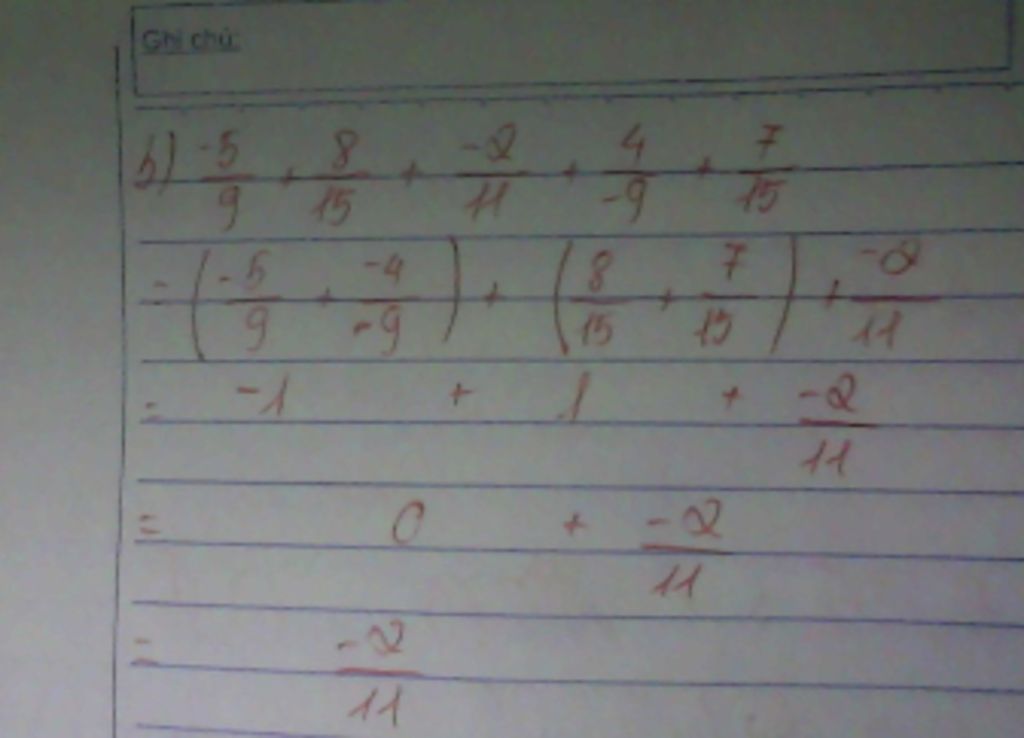 Ghi chú:
b) -5/9 + 8/15 + -2/11 + 4/-9 + 7/15
= (-5/9 + -4/-9) + (8/15 + 7/15) + -2/11
= -1 + 1 + -2/11
= 0 + -2/11
= -2/11